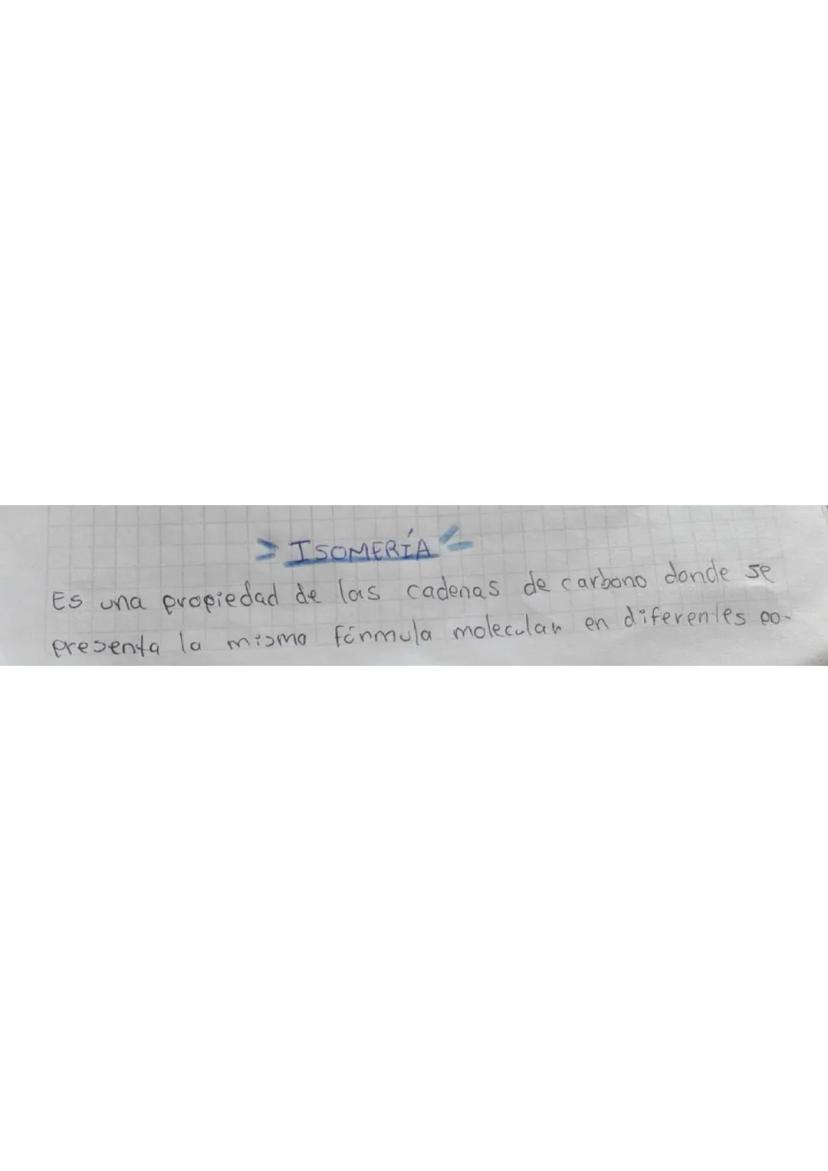 ISOMERÍA
Es una propiedad de las cadenas de carbono donde se
presenta la misma fórmula molecular en diferentes